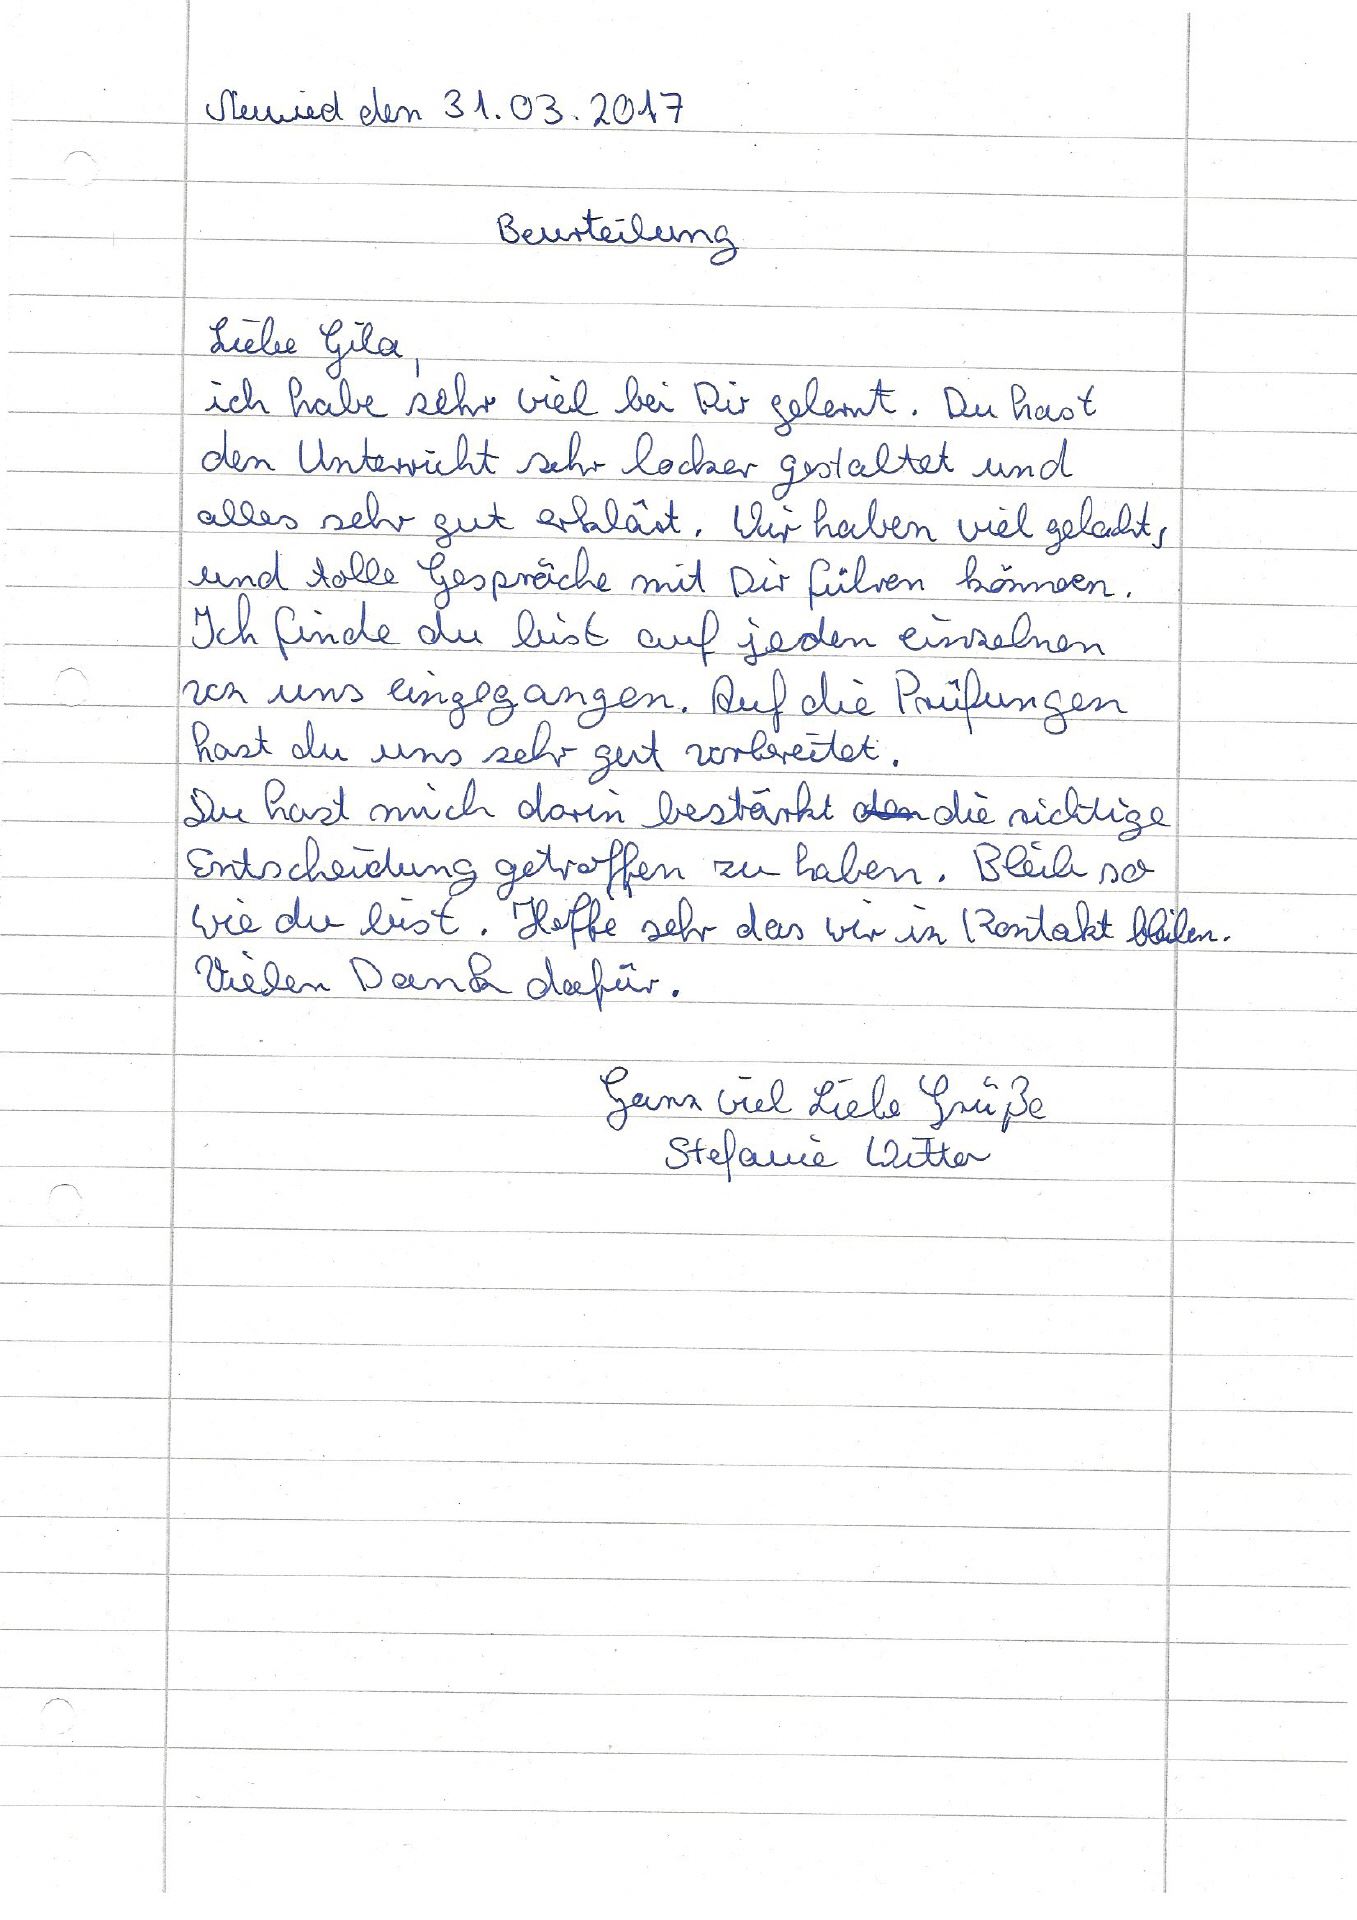 Neuwied den 31.03.2017
Beurteilung
Liebe Gila,
ich habe sehr viel bei Dir gelernt. Du hast
den Unterricht sehr locker gestaltet und
alles sehr gut erklärt. Wir haben viel gelacht,
und tolle Gespräche mit Dir führen können.
Ich finde du bist auf jeden einzelnen
von uns eingegangen. Auf die Prüfungen
hast du uns sehr gut vorbereitet.
Du hast mich darin bestärkt den die richtige
Entscheidung getroffen zu haben. Bleib so
wie du bist. Hoffe sehr das wir in Kontakt bleiben.
Vielen Dank dafür.
Ganz viel Liebe Grüße
Stefanie Witter